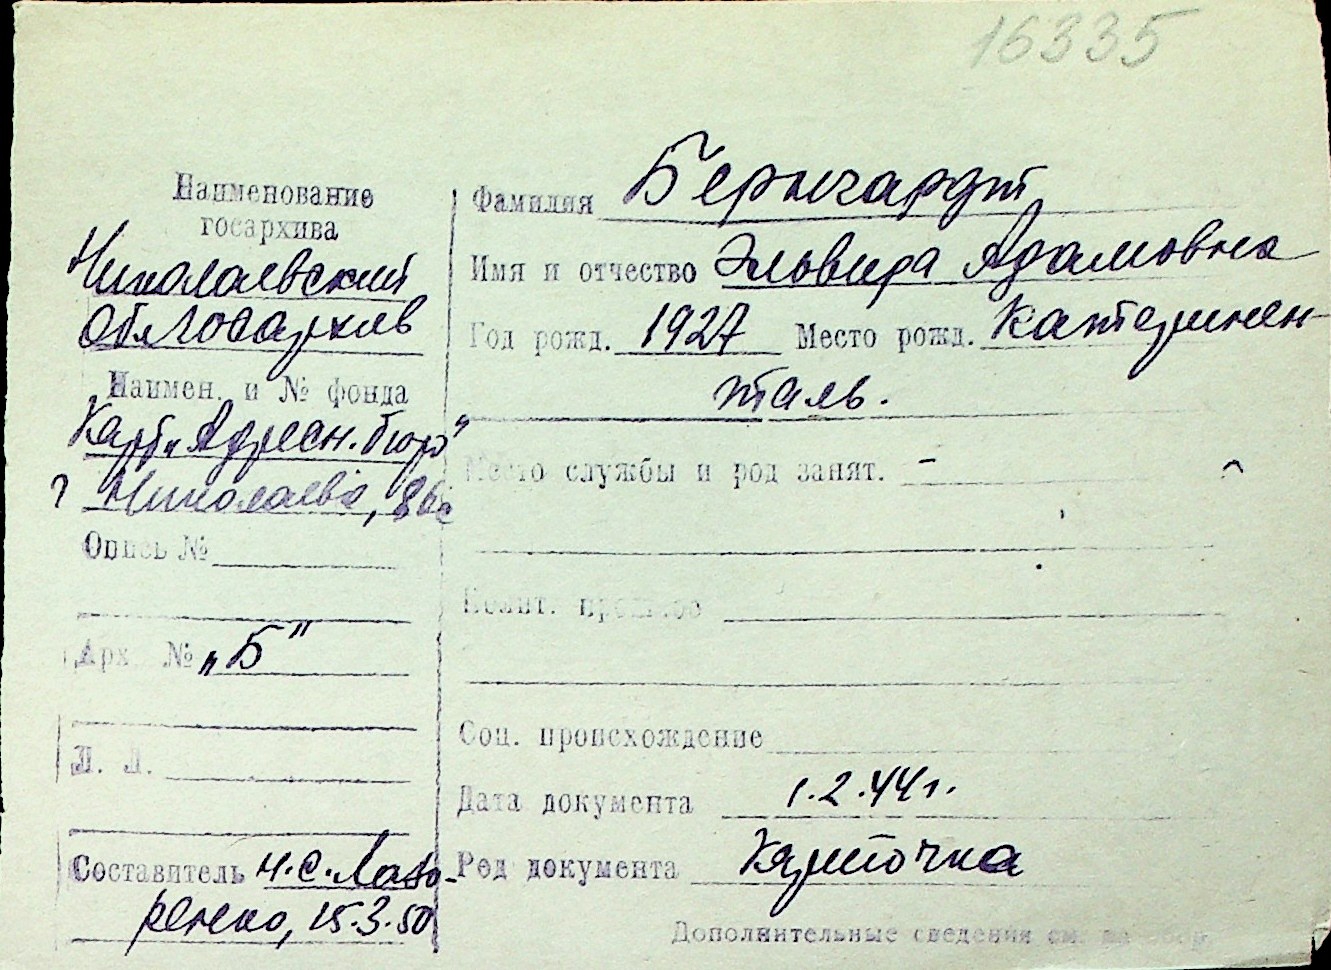 16335
Наименование
госархива
Николаевский
облгосархив
Наимен. и № фонда
Карт. „Адресн. бюро"
г Николаева,
Опись №
Арх №  „Б"
Л. Л.
Составитель Н. С. Лаво-
ренено, 15.3.50
Фамилия Бернгардт
Имя и отчество Эльвира Адамовна
Год рожд. 1927 Место рожд. Катеринен
таль.
Место службы и род занят. -
Полит. прошлое
Соц. происхождение
Дата документа 1.2.44 г.
Род документа карточка
Дополнительные сведения см. на обор.